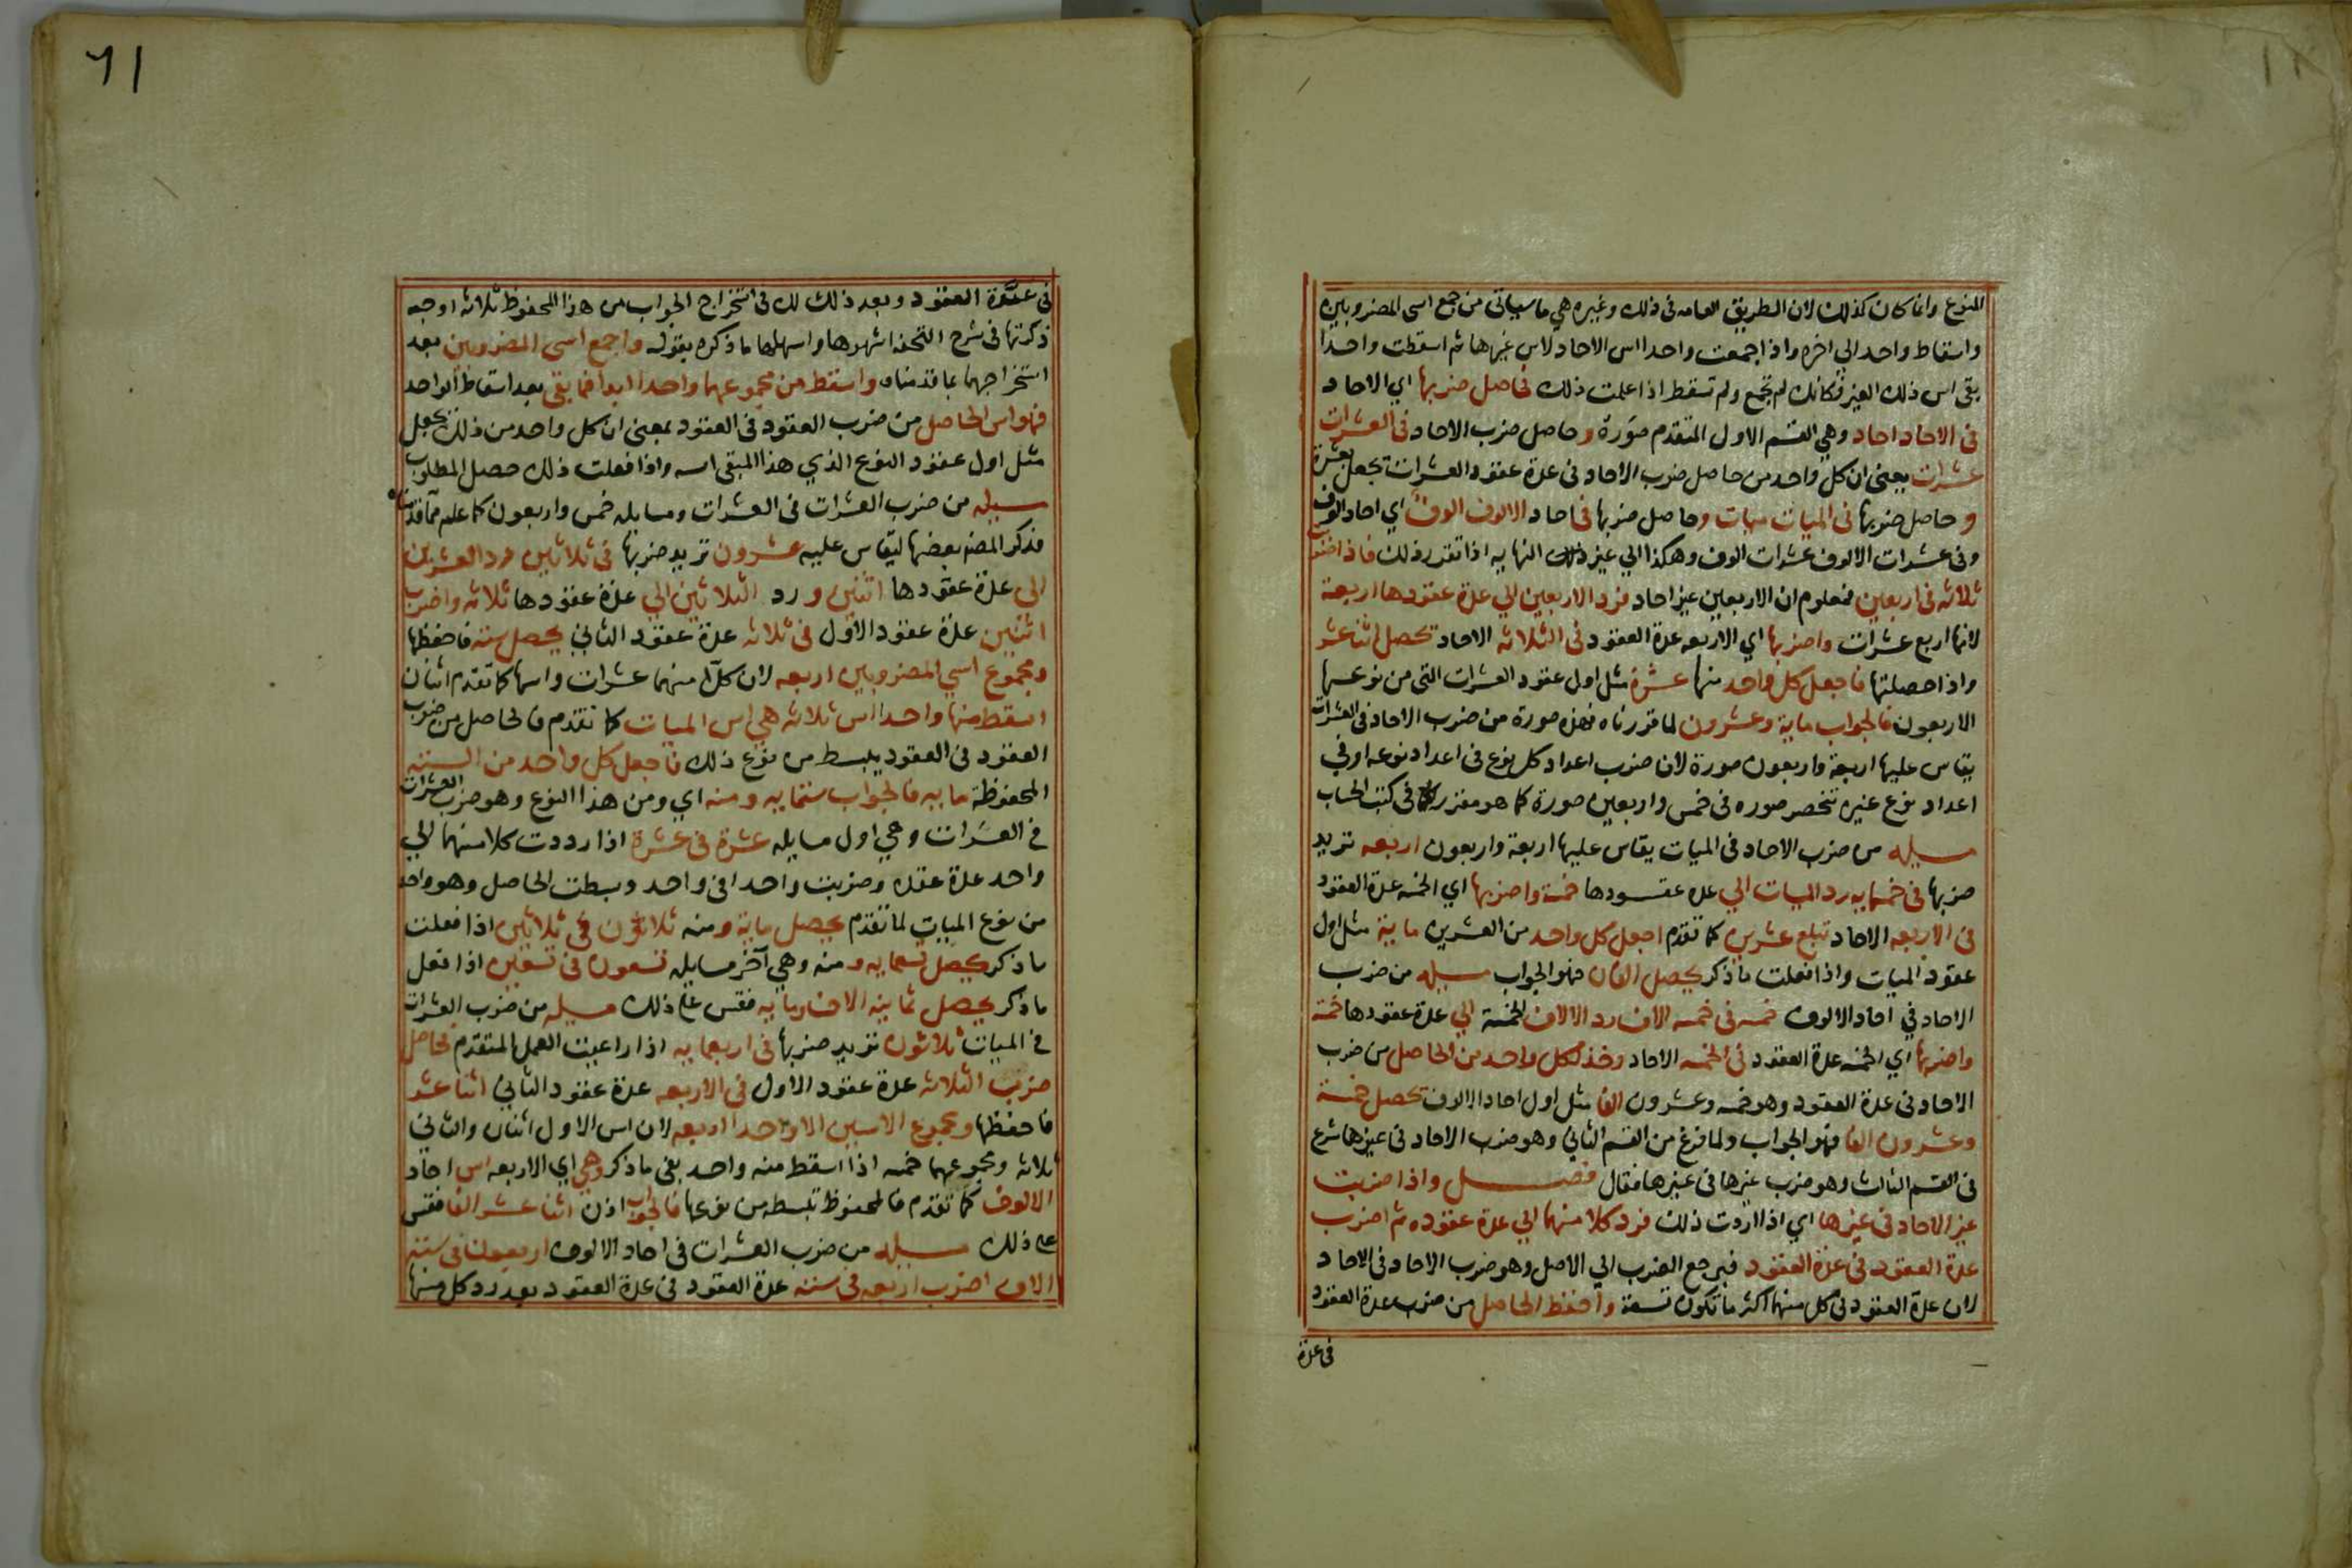 النوع وانما كان كذلك لان الطريق العامه فى ذلك وغيره هي ما سياتى من جمع اسى المضروبين
واسقاط واحد الي اخره واذا جمعت واحدا اس الاحاد لاس غيرها ثم اسقطت واحدا
بقى اس ذلك الغير فكانك لم تجمع ولم تسقط اذا علمت ذلك فحاصل ضربها اي الاحاد
فى الاحاد احاد وهي القسم الاول المتقدم صورة و حاصل ضرب الاحاد فى العشرات
عشرات يعنى ان كل واحد من حاصل ضرب الاحاد فى عدة عقود العشرات تجعل بعشرة
و حاصل ضربها فى الميات ميات وحاصل ضربها فى احاد الالوف الوف اي احاد الوف
وفى عشرات الالوف عشرات الوف وهكذا الي غير ذلك النهايه اذا تقرر ذلك فاذا ضرب
ثلاثه فى اربعين فمعلوم ان الاربعين غير احاد فرد الاربعين الي عدة عقودها اربعة
لانها اربع عشرات واضربها اي الاربعه عدة العقود فى الثلاثه الاحاد تحصل اثنا عشر
واذا حصلتها فاجعل كل واحد منها عشرة مثل اول عقود العشرات التى من نوعها
الاربعون فالجواب ماية وعشرون لما قررناه فهذه صورة من ضرب الاحاد فى العشرات
يقاس عليها اربعة واربعون صورة لان ضرب اعداد كل نوع فى اعداد نوعه او فى
اعداد نوع غيره تنحصر صوره فى خمس واربعين صورة كما هو مقرر فى كتب الحساب
مسيله من ضرب الاحاد فى الميات يقاس عليها اربعة واربعون اربعه تريد
ضربها فى خمسمايه رد الميات الي عده عقودها خمسة واضربها اي الخمسه عدة العقود
فى الاربعه الاحاد تبلغ عشرين كما تقدم اجعل كل واحد من العشرين ماية مثل اول
عقود الميات واذا فعلت ما ذكر يحصل الفان فهو الجواب مسيله من ضرب
الاحاد في احاد الالوف خمسه فى خمسه الاف رد الالاف الخمسة الي عدة عقودها خمسة
واضربها اي الخمسه عدة العقود فى الخمسه الاحاد وخذ لكل واحد من الحاصل من ضرب
الاحاد فى عدة العقود وهو خمسه وعشرون الفا مثل اول احاد الالوف تحصل خمسة
وعشرون الفا فهو الجواب ولما فرغ من القسم الثاني وهو ضرب الاحاد فى غيرها شرع
فى القسم الثالث وهو ضرب غيرها فى غيرها فقال فصل واذا ضربت
غير الاحاد فى غيرها اي اذا اردت ذلك فرد كلا منهما الي عدة عقوده ثم اضرب
عدة العقود فى عدة العقود فيرجع الضرب الي الاصل وهو ضرب الاحاد فى الاحاد
لان عدة العقود فى كل منهما اكثر ما تكون تسعة واحفظ الحاصل من ضرب عدة العقود
فى عدة
٦١
فى عدة العقود وبعد ذلك لك فى استخراج الجواب من هذا المحفوظ ثلاثه اوجه
ذكرتها فى شرح التحفه اشهرها واسهلها ما ذكره بقوله واجمع اسى المضروبين بعد
استخراجهما بما قدمناه واسقط من مجموعهما واحدا ابدا فما بقى بعد اسقاط الواحد
فهو اس الحاصل من ضرب العقود فى العقود بمعنى ان كل واحد من ذلك يجعل
مثل اول عقود النوع الذي هذا المبقى اسه واذا فعلت ذلك حصل المطلوب
مسيله من ضرب العشرات فى العشرات ومسايله خمس واربعون كما علم مما قدمناه
فذكر المصنف بعضها ليقاس عليه عشرون تريد ضربها فى ثلاثين رد العشرين
الى عدة عقودها اثنين ورد الثلاثين الي عدة عقودها ثلاثه واضرب
اثنين عدة عقود الاول فى ثلاثه عدة عقود الثاني يحصل سته فاحفظها
ومجموع اسي المضروبين اربعه لان كلا منهما عشرات واسها كما تقدم اثنان
اسقط منها واحدا اس ثلاثه هي اس الميات كما تقدم فالحاصل من ضرب
العقود فى العقود يبسط من نوع ذلك فاجعل كل واحد من السته
المحفوظة مايه فالجواب ستمايه ومنه اي ومن هذا النوع وهو ضرب العشرات
في العشرات وهي اول مسايله عشرة فى عشرة اذا رددت كلا منهما الي
واحد عدة عقده وضربت واحدا فى واحد وبسطت الحاصل وهو واحد
من نوع الميات لما تقدم يحصل ماية ومنه ثلاثون في ثلاثين اذا فعلت
ما ذكر يحصل تسعمايه ومنه وهي آخر مسايله تسعون فى تسعين اذا فعل
ما ذكر يحصل ثمانية الاف ومايه فقس على ذلك مسيله من ضرب العشرات
في الميات ثلاثون تريد ضربها فى اربعمايه اذا راعيت العمل المتقدم فحاصل
ضرب الثلاثه عدة عقود الاول فى الاربعه عدة عقود الثاني اثنا عشر
فاحفظها ومجموع الاسين الا واحدا اربعه لان اس الاول اثنان والثاني
ثلاثه ومجموعهما خمسه اذا اسقط منه واحد بقى ما ذكر وهي اي الاربعه اس احاد
الالوف كما تقدم فالمحفوظ تبسطه من نوعها فالجواب اذن اثنا عشر الفا فقس
على ذلك مسيله من ضرب العشرات فى احاد الالوف اربعون فى ستة
الاف اضرب اربعه فى سته عدة العقود فى عدة العقود بعد رد كل منها